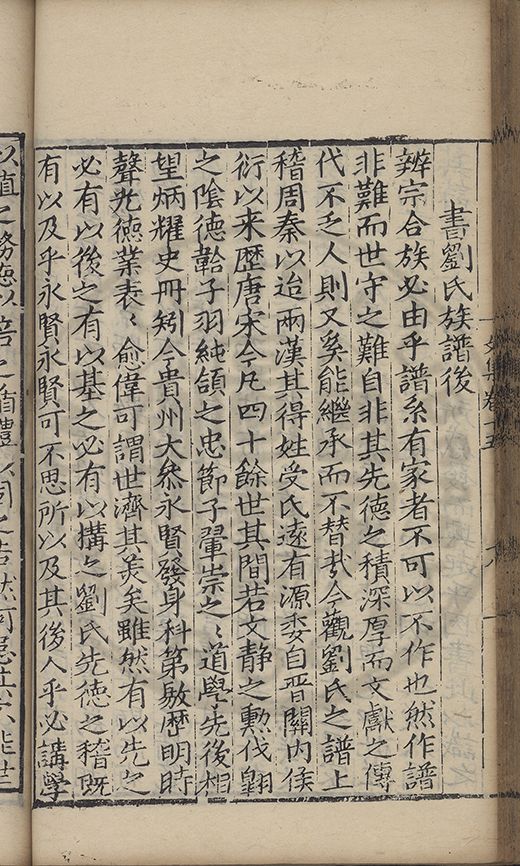 書劉氏族譜後
辨宗合族必由乎譜系有家者不可以不作也然作譜
非難而世守之難自非其先德之積深厚而文獻之傳
代不乏人則又奚能繼承而不替哉今觀劉氏之譜上
稽周秦以迨兩漢其得姓受氏遠有源委自晉關內侯
衍以来歷唐宋今凡四十餘世其間若文靜之勲伐翺
之陰德韐子羽純頜之忠節子翬崇之〻道學先後相
望炳耀史冊矧今貴州大叅永賢發身科第敭歷明時
聲光德業表〻愈偉可謂世濟其美矣雖然有以先之
必有以後之有以基之必有以搆之劉氏先徳之稽既
有以及乎永賢永賢可不思所以及其後人乎必講學